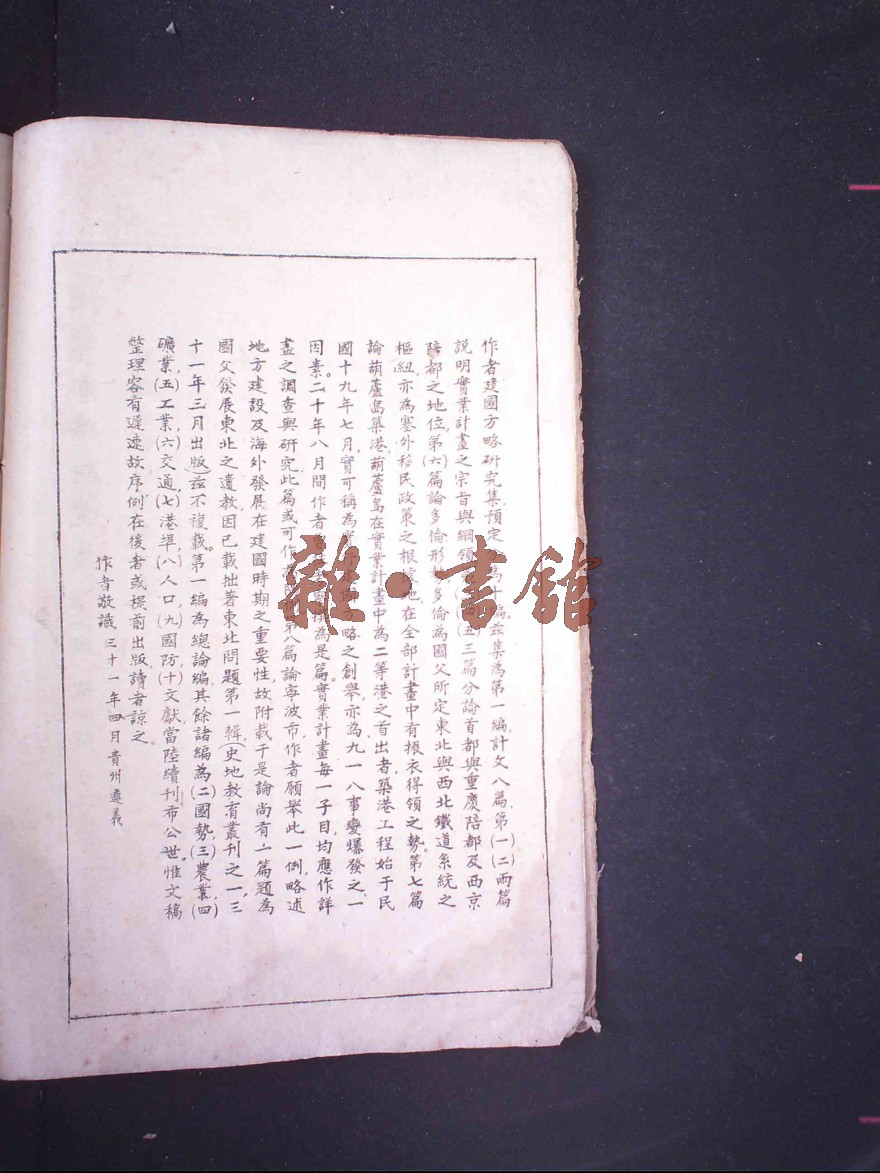 作者建國方略研究集,預定分為十編。茲集為第一編,計文八篇,第(一)(二)兩篇
說明實業計畫之宗旨與綱領,(五)三篇分論首都與重慶陪都及西京
陪都之地位,第(六)篇論多倫形勢,多倫為國父所定東北與西北鐵道系統之
樞紐,亦為塞外移民政策之根據地,在全部計畫中有振衣得領之勢。第七篇
論葫蘆島築港,葫蘆島在實業計畫中為二等港之首出者,築港工程始于民
國十九年七月,實可稱為實方略之創舉,亦為九一八事變爆發之一
因素。二十年八月間作者為是篇。實業計畫每一子目,均應作詳
盡之調查與研究,此篇或可作第八篇論寧波市,作者願舉此一例,略述
地方建設及海外發展在建國時期之重要性,故附載于是論尚有一篇題為
國父發展東北之遺教,因已載拙著東北問題第一輯(史地教育叢刊之一,三
十一年三月出版)茲不複載。第一編為總論編,其餘諸編為(二)國勢,(三)農業,(四)
礦業,(五)工業,(六)交通,(七)港埠,(八)人口,(九)國防,(十)文獻,當陸續刊布公世。惟文稿
整理容有遲速,故序例在後者或提前出版,讀者諒之。
作者敬識 三十一年四月貴州遵義
雜·書館